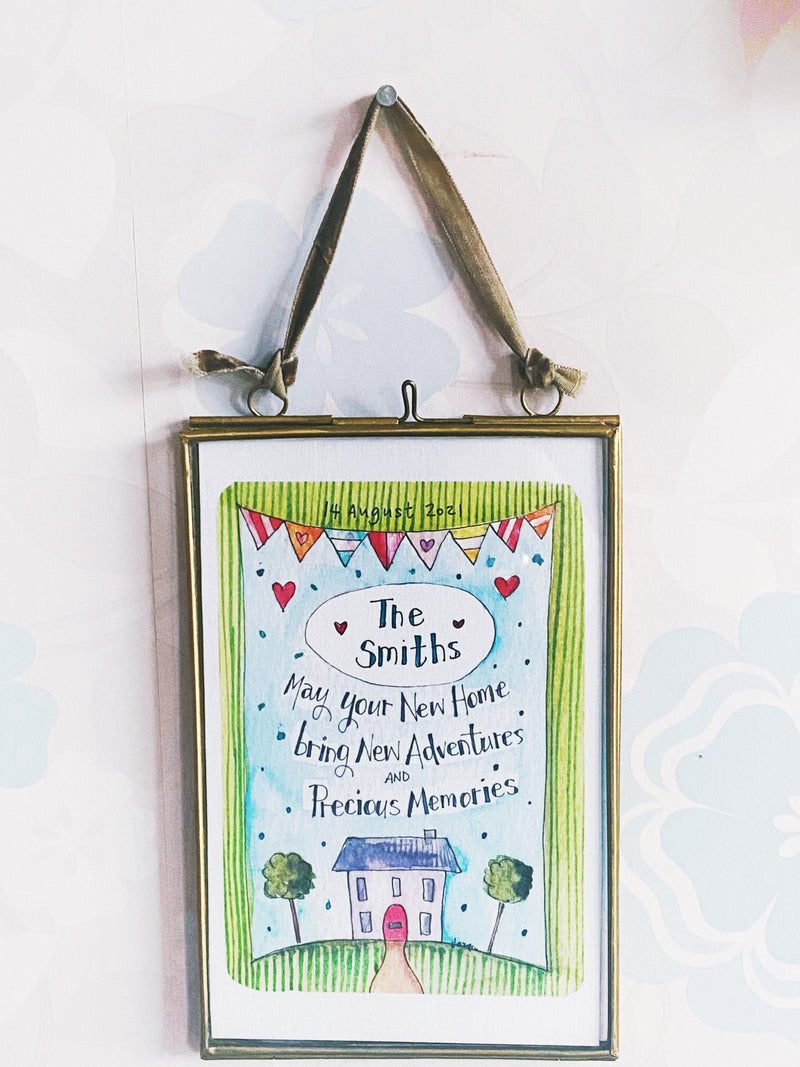 14 August 2021
The
Smiths
May your New Home
bring New Adventures
AND
Precious Memories